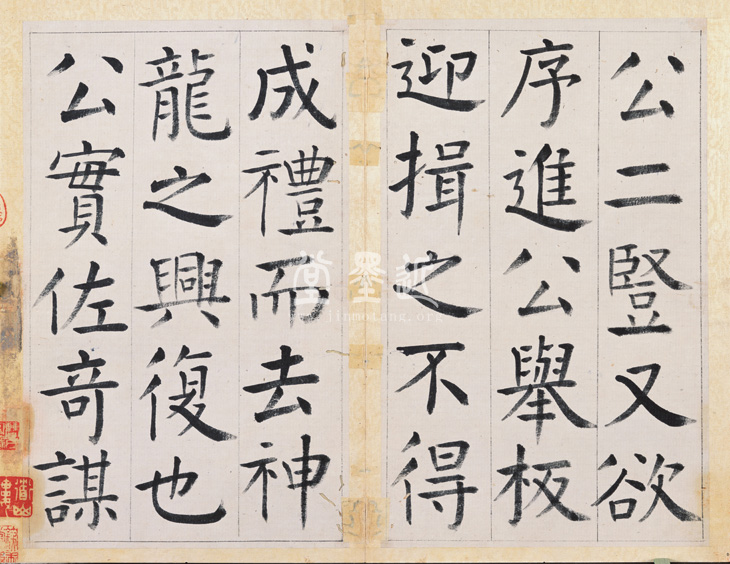 公二豎又欲
序進公舉板
迎揖之不得
成禮而去神
龍之興復也
公實佐奇謀
臨墨堂
www.linmotang.org